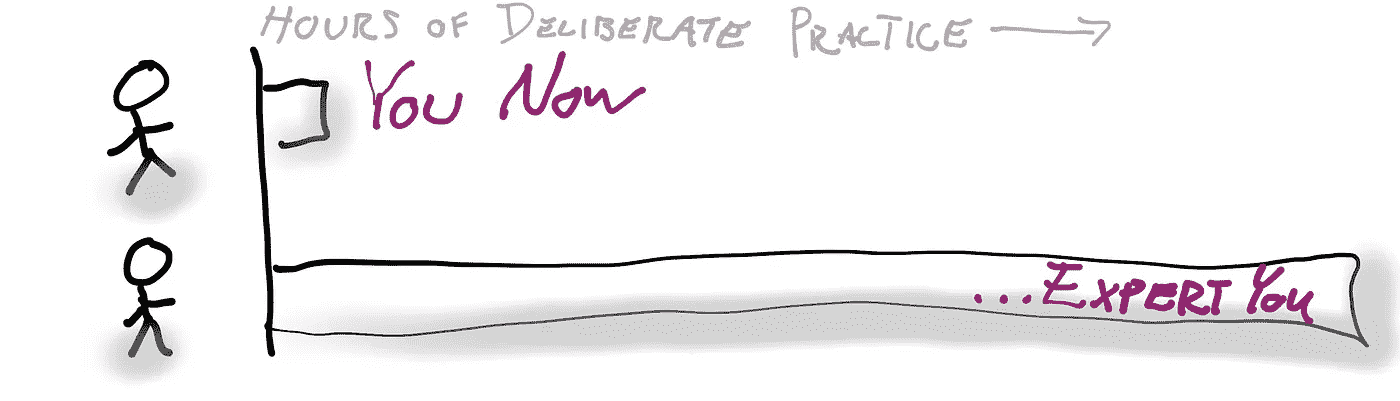 HOURS OF DELIBERATE PRACTICE
YOU NOW
...EXPERT YOU